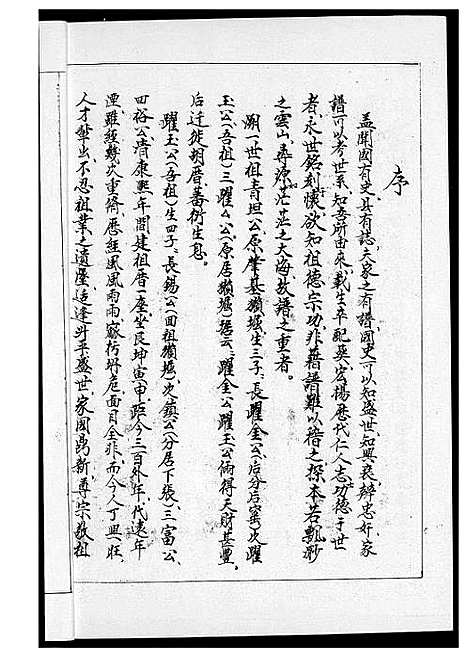 序
盖闻國有史、县有誌、夫家之有譜、國史可以知盛世、知興衰、辨忠奸、家
譜可以考世系、知吾所由來、載生卒配葬、宏揚歷代仁人志功德于世
者、永世銘刻懷、欲知祖德宗功、非藉譜難以稽之、探本若飄渺
之雲山、尋源茫茫之大海、故譜之重者。
溯一世祖青坦公、原肇基獺堀、生三子、長躍金公、(后分后窰)、次躍
玉公、(吾祖)三躍么公、(原居獺堀)据云、躍金公、躍玉公、倆得天財甚豐、
后迁徙胡厝蕃衍生息。
躍玉公、(吾祖)生四子、長錫公(回祖獺堀)次鎮公(分居下張)、三富公、
四裕公、清康熙年間建祖厝一座坐艮坤寅(申)距今三百外年、代遠年
湮、雖經幾次重脩、歷經風風雨雨、家祊坍危、面目全非、而今人丁興旺、
人才輩出、不忍祖業之遺廢、适逢升平盛世、家國鳥新、尊宗敬祖